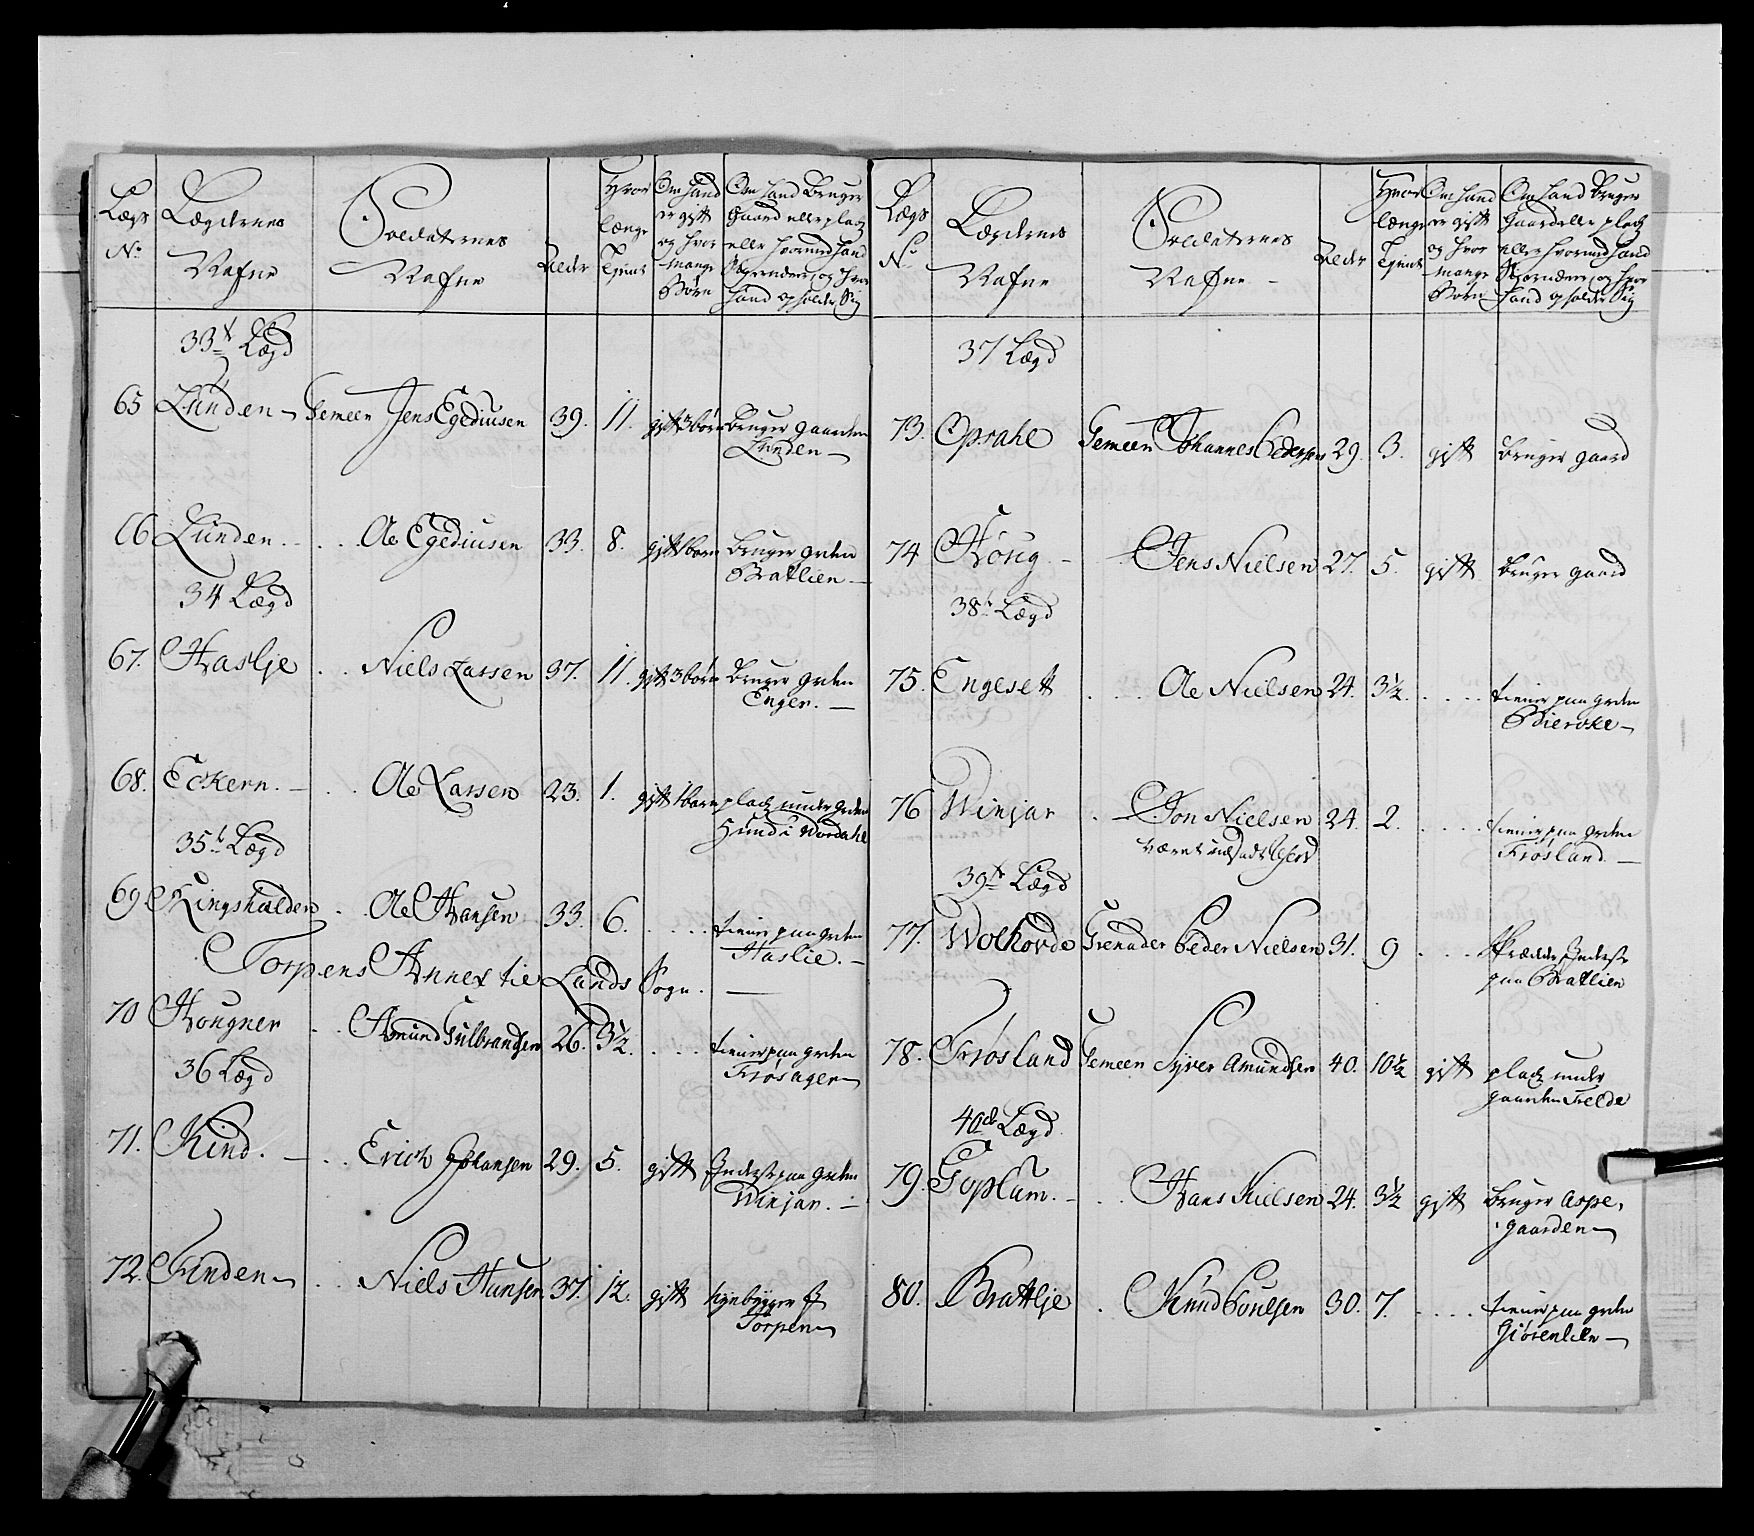 Lægs
No
Lægdernes
Nafne
Soldaternes
Nafne
Alder
Hvor
længe
tient
Om hand
er gift
og hvor
mange
Børn
Om hand Bruger
Gaard eller platz
eller hvormed hand
sig ernærer, og hvor
hand opholder Sig
33te Lægd
65 Lunden Gemeen Jens Egediusen 39. 11. gift 3 børn bruger gaarden
Lunden
66 Lunden Ole Egediusen 33. 8. gift 1 barn bruger grden
Bratlien
34 Lægd
67. Haslje Niels Larsen 37. 11. gift 3 børn bruger grden
Enger.
68. Eckern. Ole Larsen 23. 1. gift 1 barn platz under grden
Hund i Wardahl
35te Lægd
69 Ringshalden Ole Hansen 33. 6. tiener paa grden
Haslie.
Torpens Annex til Lands Sogn.
70 Hougner Amund Gulbrandsen 26. 3½. tiener paa grden
Frøsagen
36 Lægd
71. Kind. Erich Johansen 29. 5. gift Inderst paa grden
Winjar.
72. Finden Niels Hansen 37. 12. gift huusbygger i
Torpen
Lægs
No
Lægdernes
Nafne
Soldaternes
Nafne
Alder
Hvor
længe
tient
Om hand
er gift
og hvor
mange
Børn
Om hand Bruger
Gaard eller platz
eller hvormed hand
sig ernærer, og hvor
hand opholder Sig
37 Lægd
73. Opsahl Gemeen Johannes Pedersen 29. 3. gift bruger gaard
74 Houg Jens Nielsen 27. 5. gift bruger gaard
38te Lægd
75. Engesett Ole Nielsen 24. 3½. tiener paa grden
Bierke
76 Winjar Jon Nielsen 24. 2. tiener paa grden
Frøsland.
været
39te Lægd
77. Wolhovde Grenader Peder Nielsen 31. 9 Skrædder, Inderst
paa Bratlien
78. Frøsland Gemeen Syver Amundsen 40. 10½ gift platz under
gaarden Fælde
40de Lægd
79. Goplum. Hans Nielsen 24. 3½ gift bruger Aspe,
gaarden
80. Brattlje Knud Poulsen 30. 7. tiener paa grden
Giørenlien